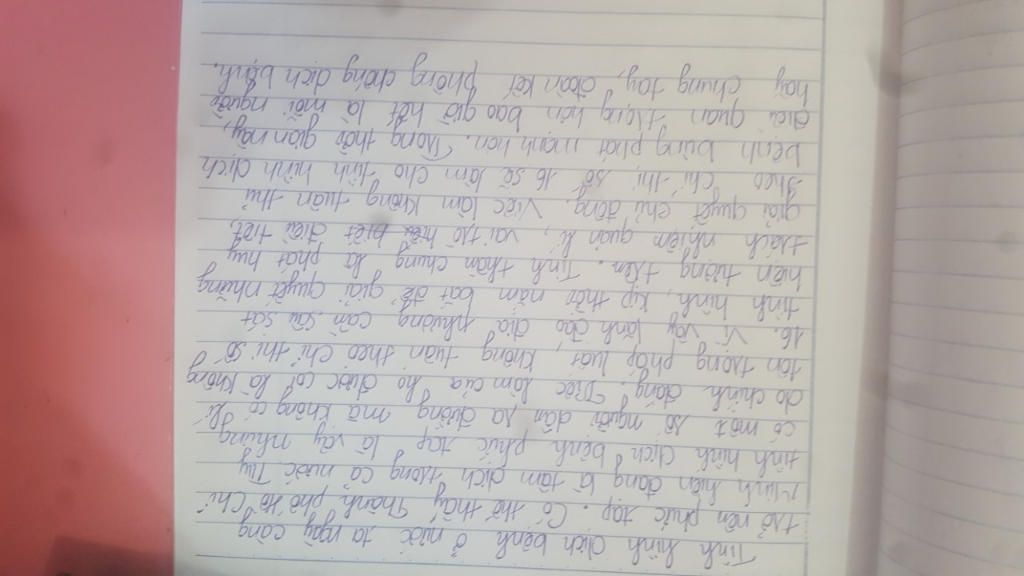 Tình hình dịch bệnh ở nước ta ngày càng
trở nên phức tạp. Có thể thấy Thành phố Hồ Chí
Minh hiện đang là tâm dịch trong cả nước. Tuy
tình hình dịch bệnh phức tạp là vậy nhưng
có một số người dân ra đường mà không có lí
do chính đáng. Việc làm của họ được coi là không
tôn trọng pháp luật, không tuân theo chỉ thị số
16. Vì vậy lãnh đạo địa phương cần sâu sát
tình hình, kịp thời nắm bắt để giải quyết những
hiện tượng trên. Tinh thần chung là phát huy
trách nhiệm quản lí, vai trò điều tiết,
giải quyết chủ động. Việc làm không tuân thủ
theo chỉ thị số 16 sẽ làm cho tình hình dịch
bệnh bùng phát mạnh hơn. Trong thời gian này,
điều quan trọng hơn bao giờ hết là mỗi người
hãy chung tay, đoàn kết phòng chống dịch bệnh.